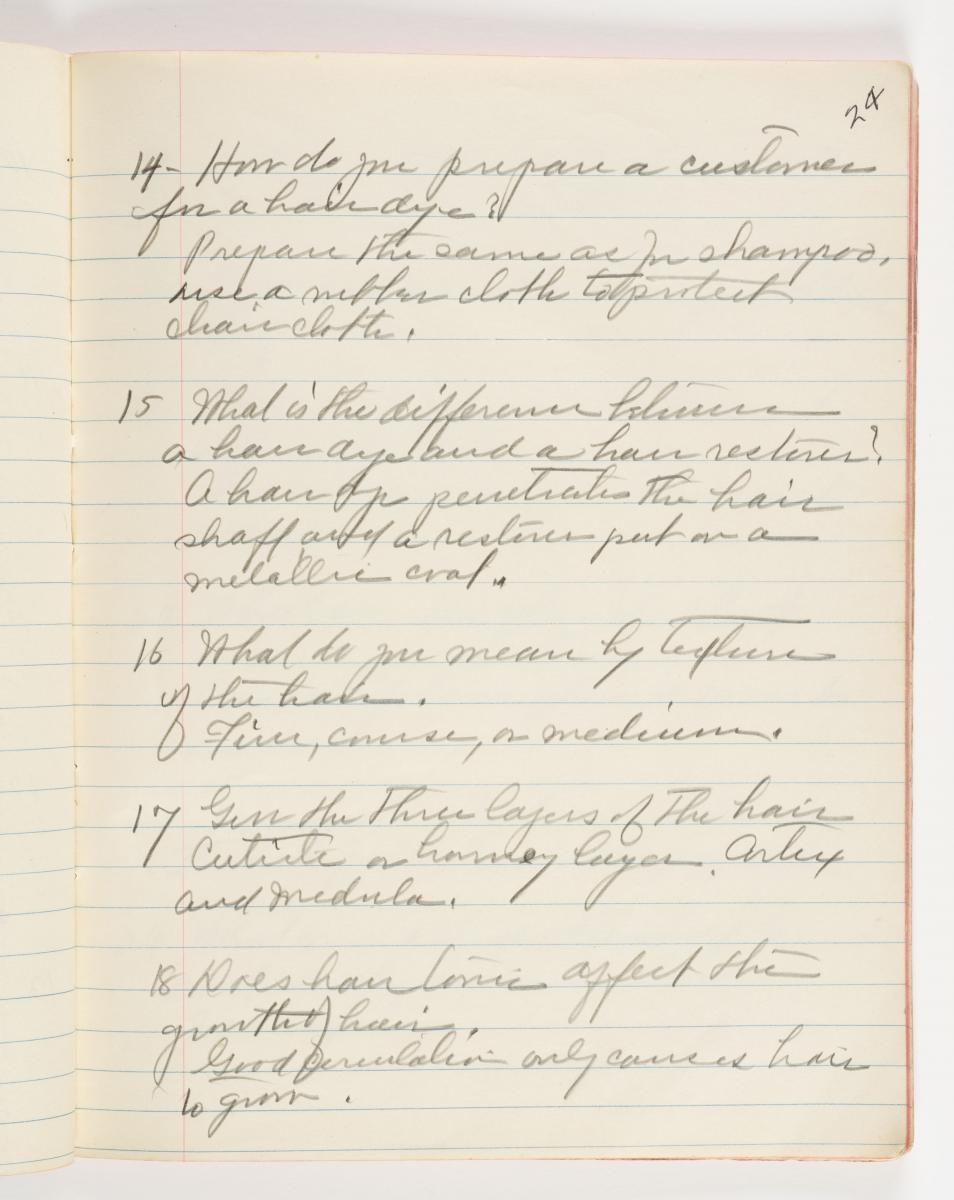 24
14- How do you prepare a customer
for a hair dye?
Prepare the same as for shampoo,
use a rubber cloth to protect
chair cloth.
15 What is the difference between
a hair dye and a hair restorer?
A hair dye penetrates the hair
shaft and a restorer put on a
metallic coat.
16 What do you mean by texture
of the hair.
Fine, course, or medium.
17 Give the three layers of the hair
Cuticle or horney layer. Cortex
and Medula.
18 Does hair tonic affect the
growth of hair.
Good circulation only causes hair
to grow.